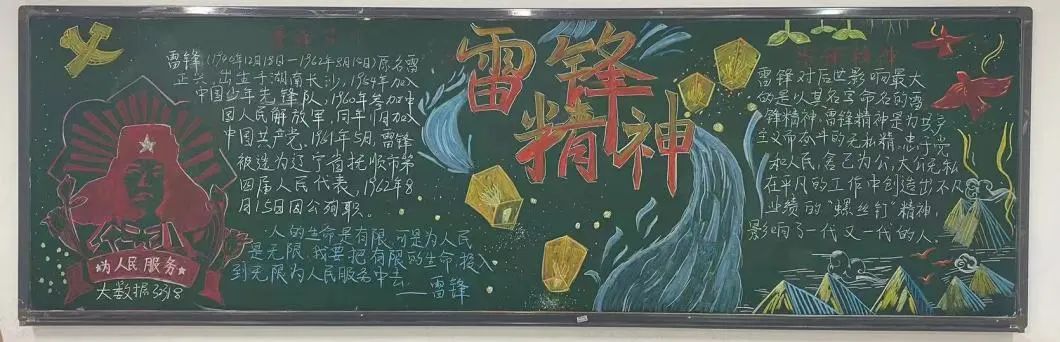 雷锋(1940年12月18日—1962年8月15日)原名雷
正兴,出生于湖南长沙,1954年加入
中国少年先锋队,1960年参加中
国人民解放军,同年11月加入
中国共产党。1961年5月,雷锋
被选为辽宁省抚顺市第
四届人民代表,1962年8
月15日因公殉职。
人的生命是有限,可是为人民
是无限,我要把有限的生命,投入
到无限为人民服务中去
——雷锋
为人民服务
大数据3318
雷锋
精神
雷锋精神
雷锋对后世影响最大
的是以其名字命名的雷
锋精神,雷锋精神是为共产
主义而奋斗的无私精,忠于党
和人民,舍己为公,大公无私
在平凡的工作中创造出不凡
业绩的“螺丝钉”精神,
影响了一代又一代的人.